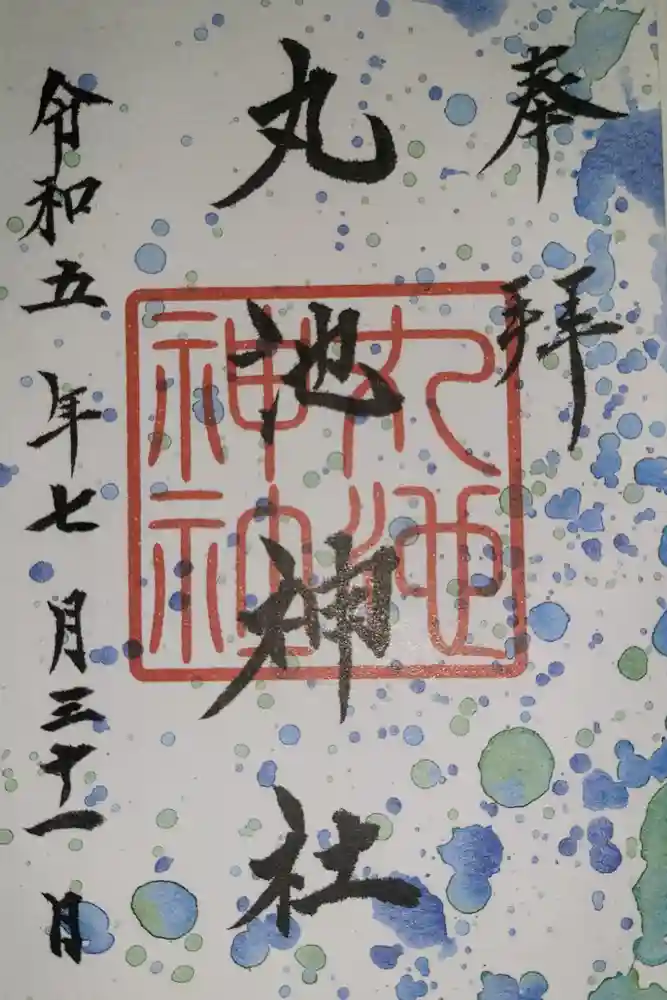 奉拝
丸池神社
丸池
神社
令和五年七月三十一日